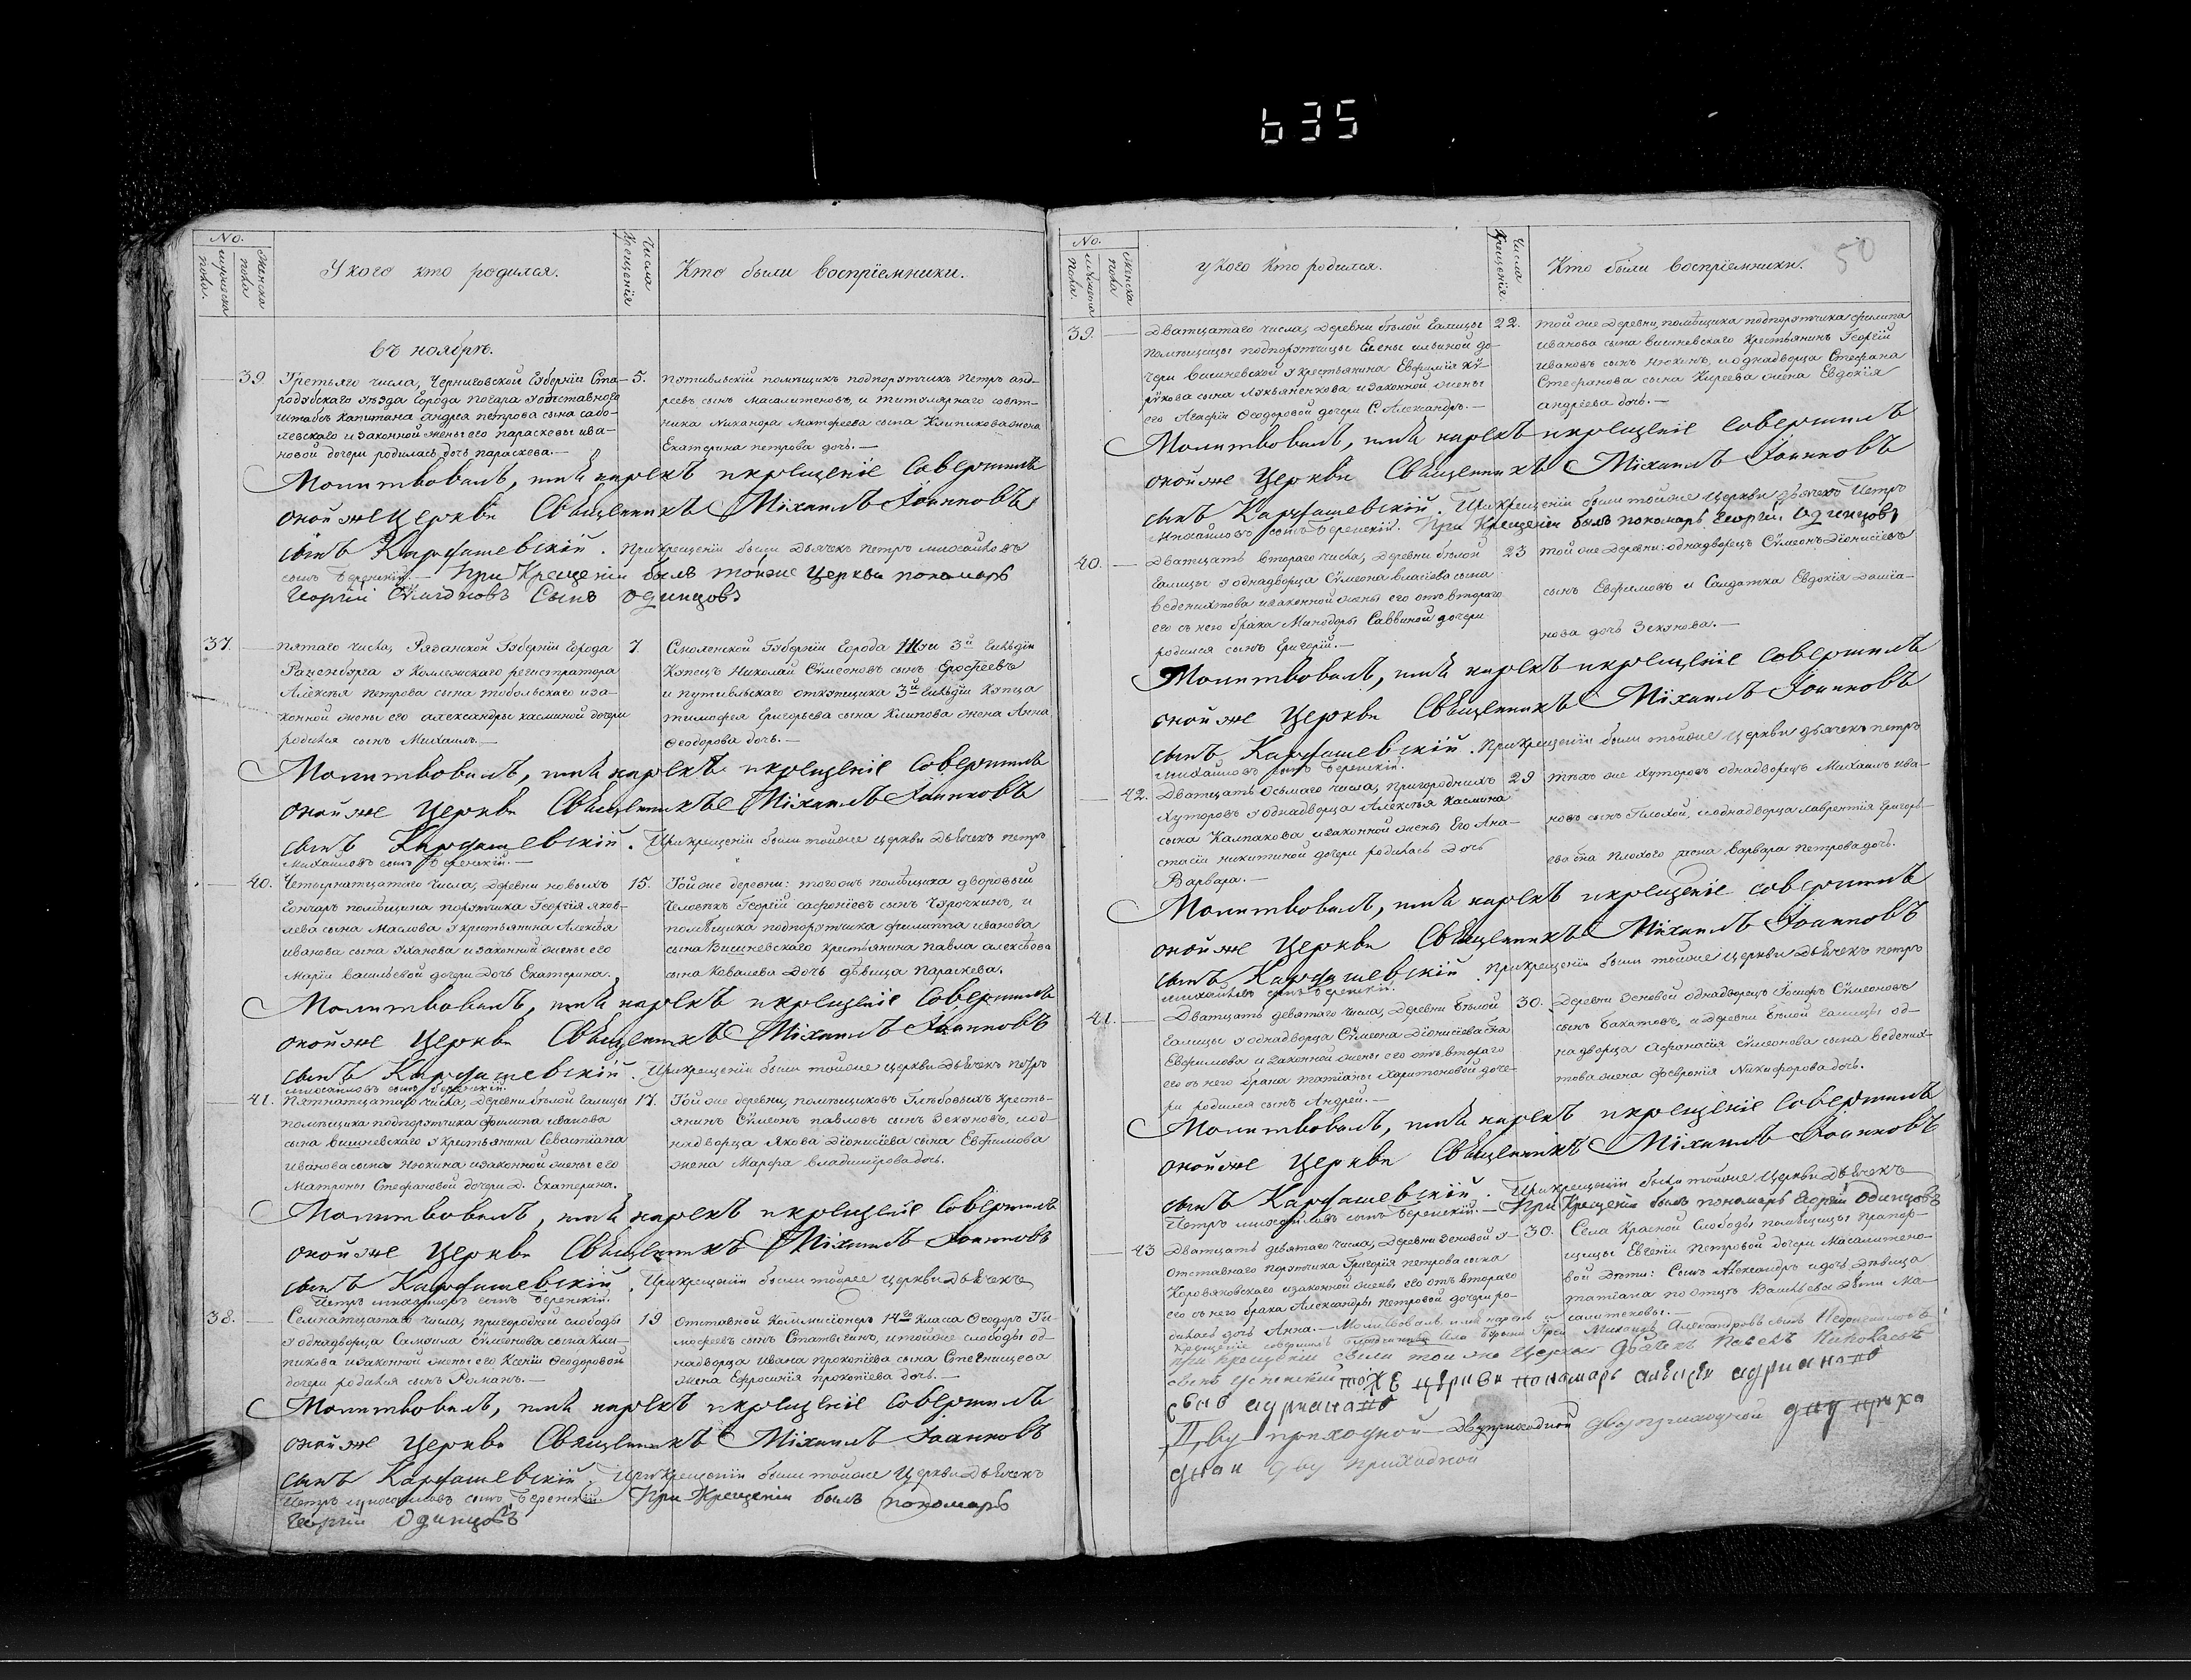 635
No.
мужеска пола.
Женска пола
У кого кто родился.
Числа Крещенія
Кто были воспріемники.
въ ноябрѣ.
39 Третьяго числа, Черниговской Губерніи Ста-
родубскаго уѣзда Города Погара у отставнаго
штабсъ капитана андрея петрова сына садо-
левскаго и законной жены его параскевы ива-
новой дочери родилась дочь параскева.—
5. путивльскій помѣщикъ подпорутчикъ петръ анд-
реевъ сынъ масалитеновъ, и титулярнаго совѣт-
ника Никанора Матфеева сына Клипикова жена
Екатерина петрова дочь.—
Молитвовалъ, имя нарекъ и крещеніе совершилъ
оной же Церкви Священникъ Міхаилъ Іоанновъ
сынъ Карташевскій. При крещеніи были Дьячекъ петръ михайловъ
сынъ Беренскій.— При Крещеніи былъ тойже Церкви пономарь
Георгій Сѵмеоновъ Сынъ Одинцовъ
37. пятаго числа, Рязанской Губерніи Города
Раненбурга у Коллежскаго регистратора
Алексѣя петрова сына тобольскаго и за-
конной жены его александры касминой дочери
родился сынъ Михаилъ.—
7. Смоленской Губерніи Города 3й Гильдіи
Купецъ Николай Сѵмеоновъ сынъ Ерофеевъ
и путивльскаго откупщика 3й Гильдіи Купца
тимофея Григорьева сына Клипова жена Анна
Феодорова дочь.—
Молитвовалъ, имя нарекъ и крещеніе совершилъ
оной же Церкви Священникъ Міхаилъ Іоанновъ
сынъ Карташевскій. При крещеніи были тойже церкви Дьячекъ петръ
Михайловъ сынъ Беренскій.—
40. Четырнатцатаго числа, Деревни новыхъ
Гончаръ помѣщика порутчика Георгія яков-
лева сына Маслова у крестьянина Алексѣя
иванова сына Уханова и законной жены его
Маріи васильевой дочери Дочь Екатерина.
15. Той же деревни: тогожъ помѣщика дворовый
человѣкъ Георгій сафоніевъ сынъ Чурочкинъ, и
помѣщика подпорутчика филиппа иванова
сына Вишневскаго крестьянина павла алексѣева
сына Ковалева Дочь дѣвица Параскева.
Молитвовалъ, имя нарекъ и крещеніе совершилъ
оной же Церкви Священникъ Міхаилъ Іоанновъ
сынъ Карташевскій. При крещеніи были тойже церкви Дьячекъ петръ
михайловъ сынъ Беренскій.
41. Пятнатцатаго числа, Деревни бѣлой Галицы
помѣщика подпорутчика филипа иванова
сына вишневскаго у крестьянина Севастіана
иванова сына Нюкина и законной жены его
Матроны Стефановой дочери Д. Екатерина.
17. Той же деревни, помѣщиковъ Глѣбовыхъ кресть-
янинъ Сѵмеонъ павловъ сынъ Зекуновъ, и од-
надворца якова Діонисіева сына Евфимова
жена Марфа владимірова дочь.
Молитвовалъ, имя нарекъ и крещеніе совершилъ
оной же Церкви Священникъ Міхаилъ Іоанновъ
сынъ Карташевскій. При крещеніи были тойже церкви Дьячекъ
Петръ михайловъ сынъ Беренскій.
38. Семнатцатаго числа, пригородной слободы
у однадворца Самоила сѵмеонова сына Кли-
пикова и законной жены его Ксеніи Феодоровой
дочери родился сынъ Романъ.—
19 отставной Коммисіонеръ 14го класа Феодоръ Ти-
мофеевъ сынъ Статывинъ, и тойже слободы од-
надворца ивана прокопіева сына Стегнищева
жена Ефросинія прокопіева дочь.—
Молитвовалъ, имя нарекъ и крещеніе совершилъ
оной же Церкви Священникъ Міхаилъ Іоанновъ
сынъ Карташевскій. При крещеніи были тойже Церкви Дьячекъ
Петръ михайловъ сынъ Беренскій. При Крещеніи былъ пономарь
Георгій Одинцовъ
No.
мужеска пола.
Женска пола
у кого кто родился.
Числа Крещенія.
Кто были воспріемники.
50
39. Дватцатаго числа, Деревни бѣлой Галицы
помѣщицы подпорутчицы Елены ильиной до-
чери вишневской у крестьянина Евфимія Кѵ-
рукова сына Лукьяненкова и законной жены
его Агафіи Феодоровой дочери С. Александръ.—
22. той же Деревни, помѣщика подпорутчика филипа
иванова сына вишневскаго Крестьянинъ Георгій
ивановъ сынъ Нюкинъ, и однадворца Стефана
Стефанова сына Киреева жена Евдокія
андреева дочь.—
Молитвовалъ, имя нарекъ и крещеніе совершилъ
оной же Церкви Священникъ Міхаилъ Іоанновъ
сынъ Карташевскій. При крещеніи были тойже церкви дьячекъ Петръ
михайловъ сынъ Беренскій. При Крещеніи былъ пономарь Георгій Одинцовъ
40. Дватцать втораго числа, Деревни бѣлой
Галицы у однадворца Сѵмеона власіева сына
веденихтова и законной жены его отъ втораго
его съ него брака Минодоры Саввиной дочери
родился сынъ Григорій.—
23 той же Деревни: однадворецъ Сѵмеонъ Діонисіевъ
сынъ Евфимовъ и Салдатка Евдокія Даміа-
нова дочь Зекунова.—
Молитвовалъ, имя нарекъ и крещеніе совершилъ
оной же Церкви Священникъ Міхаилъ Іоанновъ
сынъ Карташевскій. При крещеніи были тойже церкви дьячекъ петръ
михайловъ сынъ Беренскій.
42. Дватцать осьмаго числа, пригородныхъ
хуторовъ у однадворца Алексѣя Касмина
сына Калпакова и законной жены Его Ана-
стасіи никитиной дочери родилась Дочь
Варвара.—
29 тѣхъ же хуторовъ однадворецъ Михаилъ ива-
новъ сынъ Плохой, и однадворца лаврентія Григорь-
ева сна Плохого жена варвара петрова дочь.
Молитвовалъ, имя нарекъ и крещеніе совершилъ
оной же Церкви Священникъ Міхаилъ Іоанновъ
сынъ Карташевскій. При крещеніи были тойже церкви Дьячекъ петръ
михайловъ сынъ Беренскій.
41. Дватцать девятаго числа, Деревни бѣлой
Галицы у однадворца Сѵмеона Діонисіева сна
Евфимова и законной жены его отъ втораго
его съ него брака татіаны Харитоновой доче-
ри родился сынъ Андрей.—
30. Деревни Зеновой однадворецъ Іосифъ Сѵмеоновъ
сынъ Бакатовъ, и Деревни бѣлой Галицы од-
надворца Афанасія сѵмеонова сына ведених-
това жена февронія Никифорова дочь.
Молитвовалъ, имя нарекъ и крещеніе совершилъ
оной же Церкви Священникъ Міхаилъ Іоанновъ
сынъ Карташевскій. При крещеніи были тойже Церкви Дьячекъ
Петръ михайловъ сынъ Беренскій.— При Крещеніи былъ пономарь Георгій Одинцовъ
43 Дватцать девятаго числа, Деревни Зеновой у
отставнаго порутчика Григорія петрова сына
Коровяковскаго и законной жены его отъ втораго
его съ него брака Александры петровой дочери ро-
дилась дочь Анна.— Молитвовалъ, имя нарекъ и
30. Села Красной Слободы помѣщицы прапор-
щицы Евгеніи Петровой дочери Масалитено-
вой Дѣти: Сынъ Александръ и дочь дѣвица
татіана по отцѣ Васильевы дѣти Ма-
салитеновы.—
крещеніе совершилъ Іерей Михаилъ Александровъ сынъ
при крещеніи были той же Церкви Дьячекъ Павелъ Николаевъ
сынъ Успенскій тоже церкви пономарь алексѣи адриановъ
сынъ адриановъ
Двуприходной Двуприходной двуприходной
двуприходной